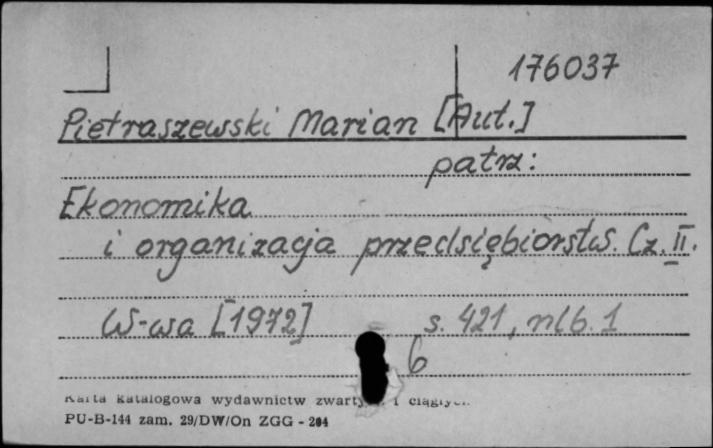 176037
Pietraszewski Marian [Aut.]
patrz:
Ekonomika
i organizacja przedsiębiorstw. Cz. II.
W-wa [1972] s. 421, nlb. 1
6
Karta katalogowa wydawnictw i
PU-B-144 zam. 29/DW/On ZGG - 204